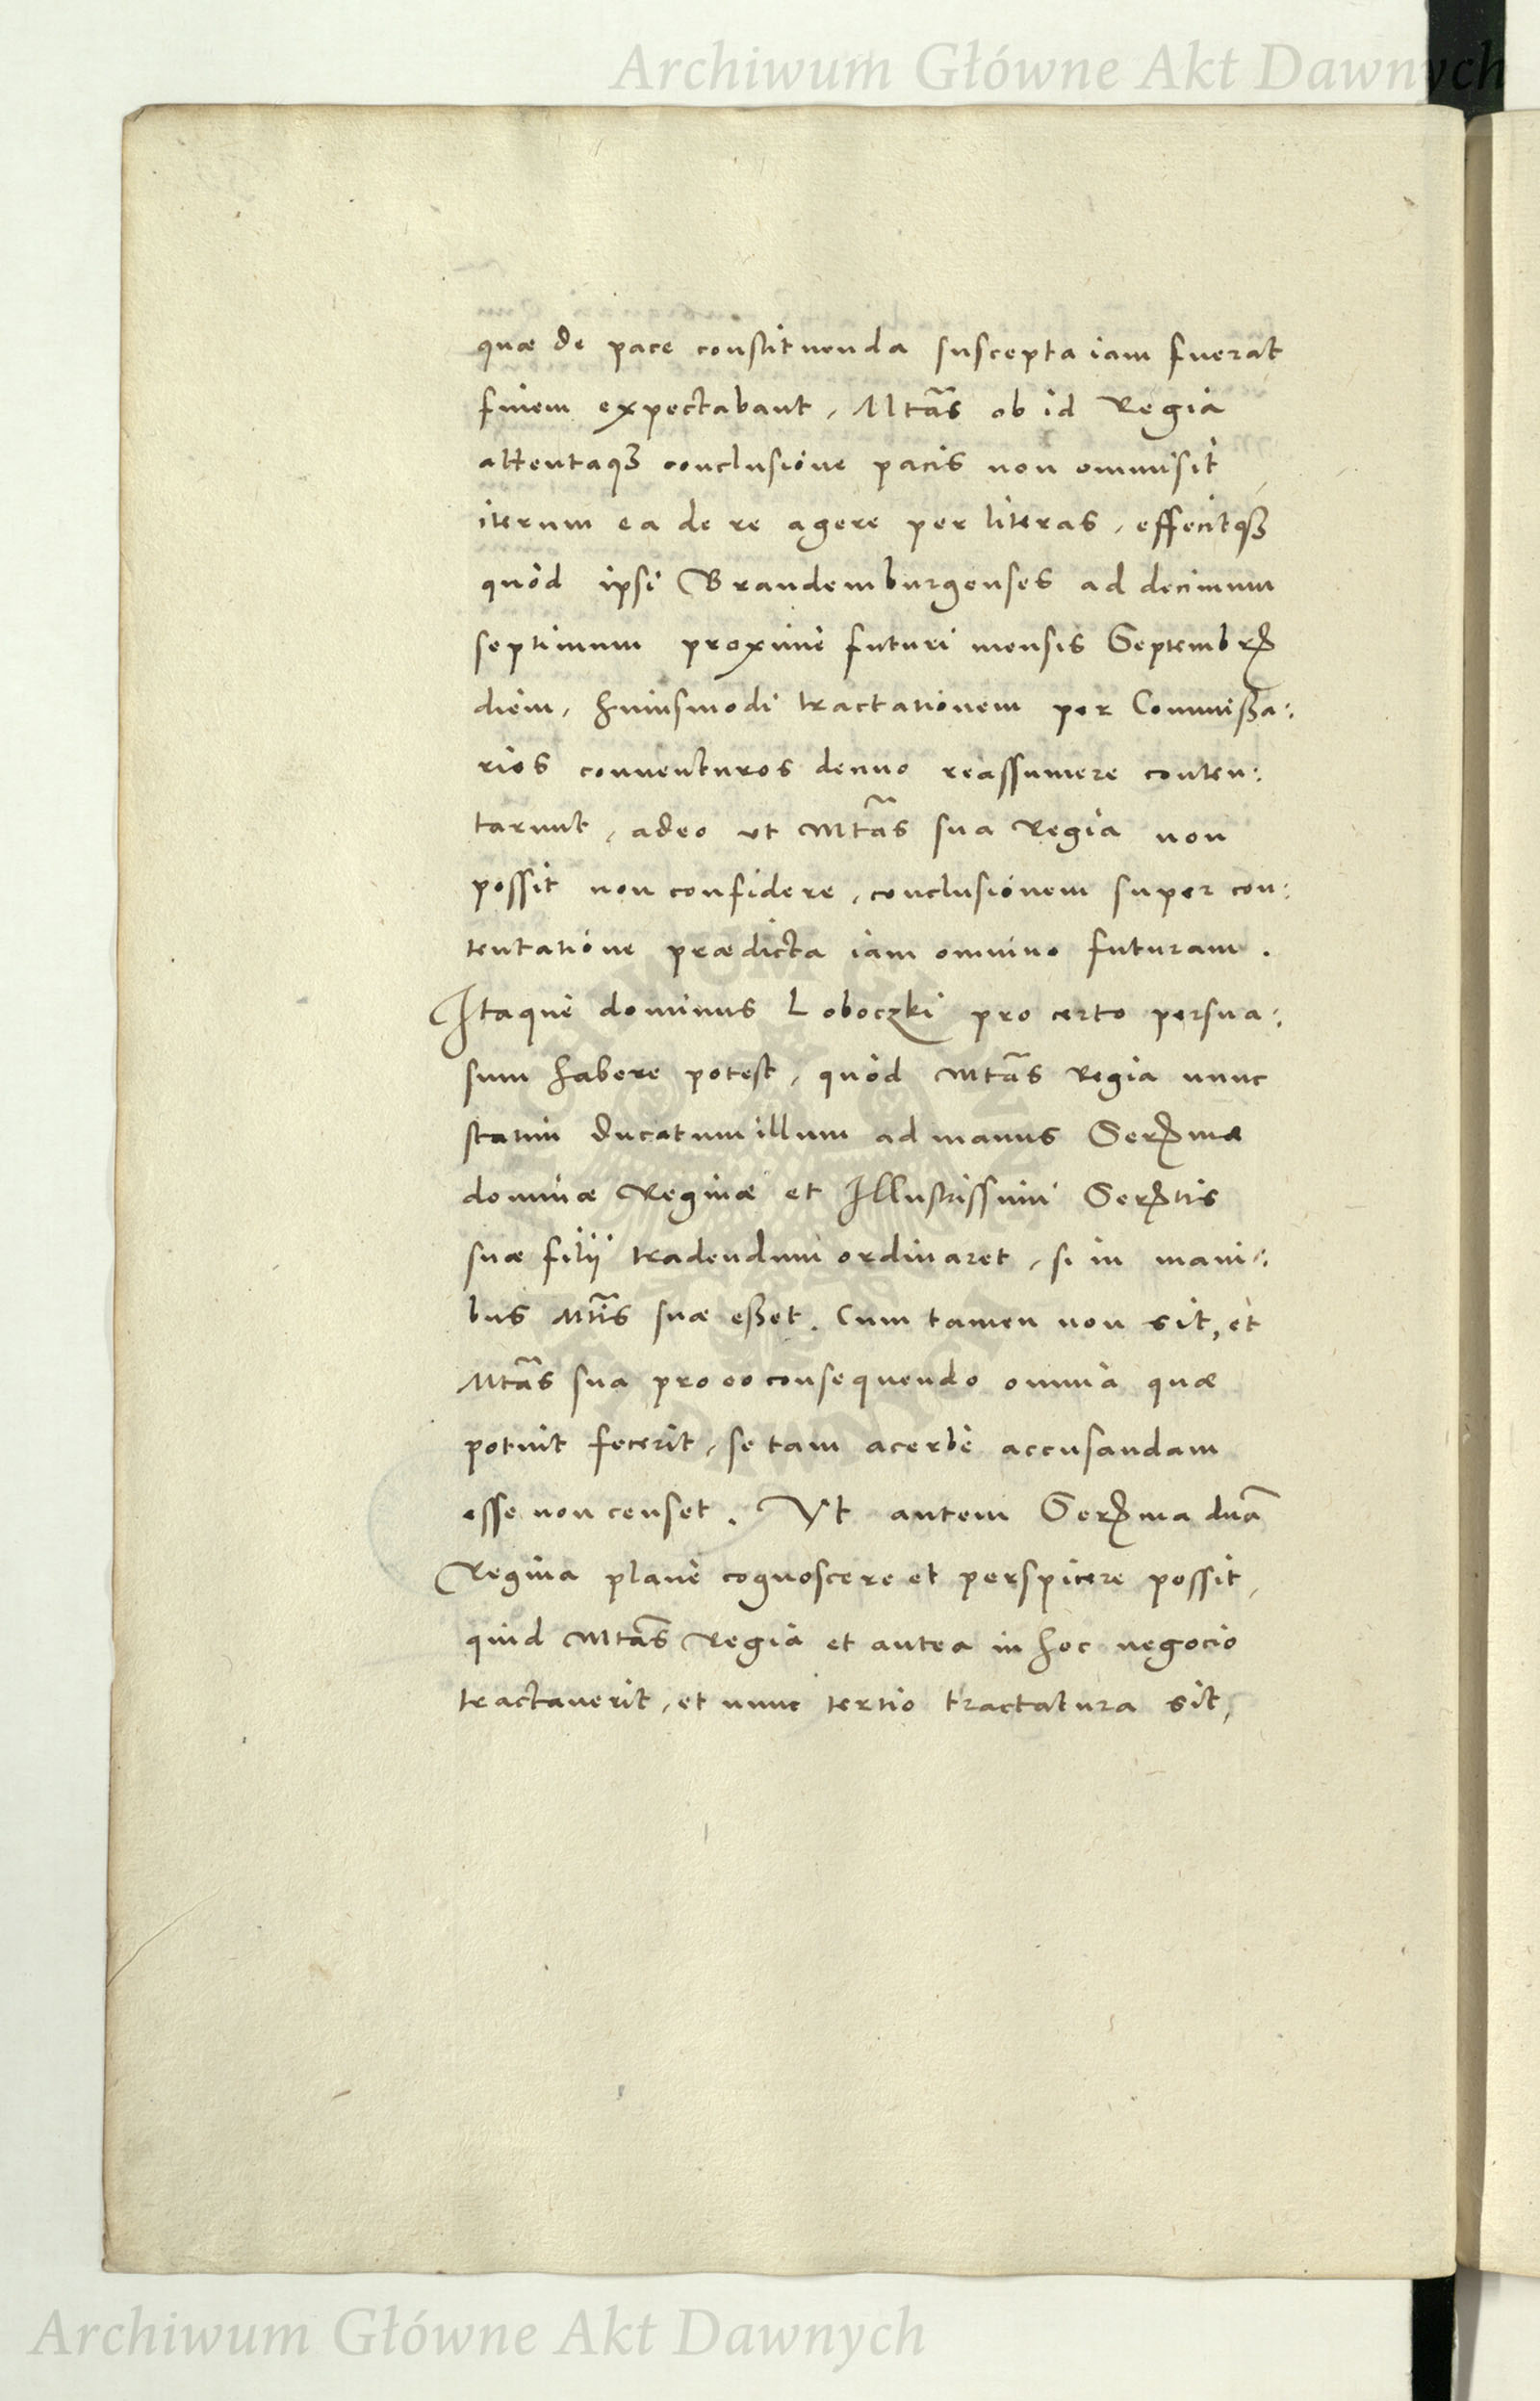 Archiwum Główne Akt Dawnych
quæ de pace constituenda suscepta iam fuerat
finem expectabant, Mtas ob id Regia
attentaq3 conclusione pacis non ommisit
iterum ea de re agere per literas, effecitq3
quòd ipsi Brandemburgenses ad decimum
septimum proximè futuri mensis Septembr
diem, huiusmodi tractationem per Commißa:
rios conuenturos denuo reassumere conten:
tarunt, adeo vt Mtas sua Regia non
possit non confidere, conclusionem super con:
tentatione prædicta iam omnino futuram.
Itaque dominus Loboczki pro certo persua:
sum habere potest, quòd Mtas Regia nunc
statim ducatum illum ad manus Serma
dominæ Reginæ et Illustrissimi Sertis
suæ filij tradendum ordinaret, si in mani:
bus Mtis suæ eßet. Cum tamen non sit, et
Mtas sua pro eo consequendo omnia quæ
potuit fecerit, se tam acerbè accusandam
esse non censet. Vt autem Serma dna
Regina planè cognoscere et perspicere possit,
quid Mtas Regia et antea in hoc negocio
tractauerit, et nunc tertio tractatura sit,
Archiwum Główne Akt Dawnych